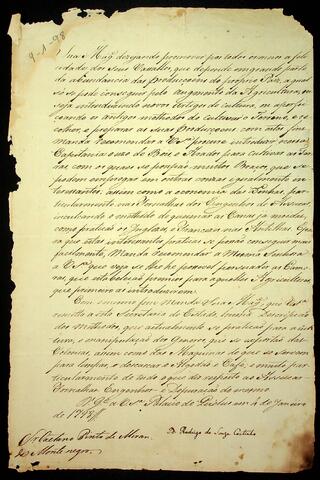 9-1-98
Sua Mag.e dezejando promover por todos os meios a feli-
cidade dos Seus Vassallos, que depende em grande parte
da abundancia das Producçoens do proprio Paiz, a qual
só se pode conseguir pelo augmento da Agricultura, ou
seja introduzindo novos Artigos de cultura, ou aperfei-
çoando os antigos methodos de cultivar o Terreno, e co-
lher, e preparar as suas Producçoens com este fim
Manda recommendar a V.S.a procure introduzir nessa
Capitania o uso dos Bois, e Arados para cultivar as Ter-
ras com o que se poupão muitos Braços, que se
podem empregar em outras e igualmente in-
teressantes, assim como a economia das Lenhas, par-
ticularmente nas Fornalhas dos Engenhos de Assucar
inculcando o methodo de queimar as Canas já moidas,
como praticão os Inglezes, e Francezes nas Antilhas. E pa-
ra que estes interessantes praticas se possão conseguir mais
facilmente, Manda recommendar a Mesma Senhora
a V.S.a que veja se lhe he possivel persuadir as Cama-
ras, que estabeleção premios para aquelles Agricultores
que primeiro as introduzirem.
Com o mesmo fim Manda Sua Mag.e, que V.S.a
remetta a esta Secretaria de Estado, huma Descripção
dos Methodos, que actualmente se praticão para a cul-
tura, e manipulação dos Generos, que se exportão das
Colonias, assim como das Maquinas de que se servem
para limpar, e descascar o Algodão e Café, e muito par-
ticularmente de tudo o que diz respeito ao Assucar
Fornalhas, Engenhos, e Refinação do mesmo.
D.s G.e a V.S.a Palacio de Queluz em 4 de Janeiro
de 1798
D. Rodrigo de Souza Coutinho
Sr. Caetano Pinto de Miran.
da Monte negro.